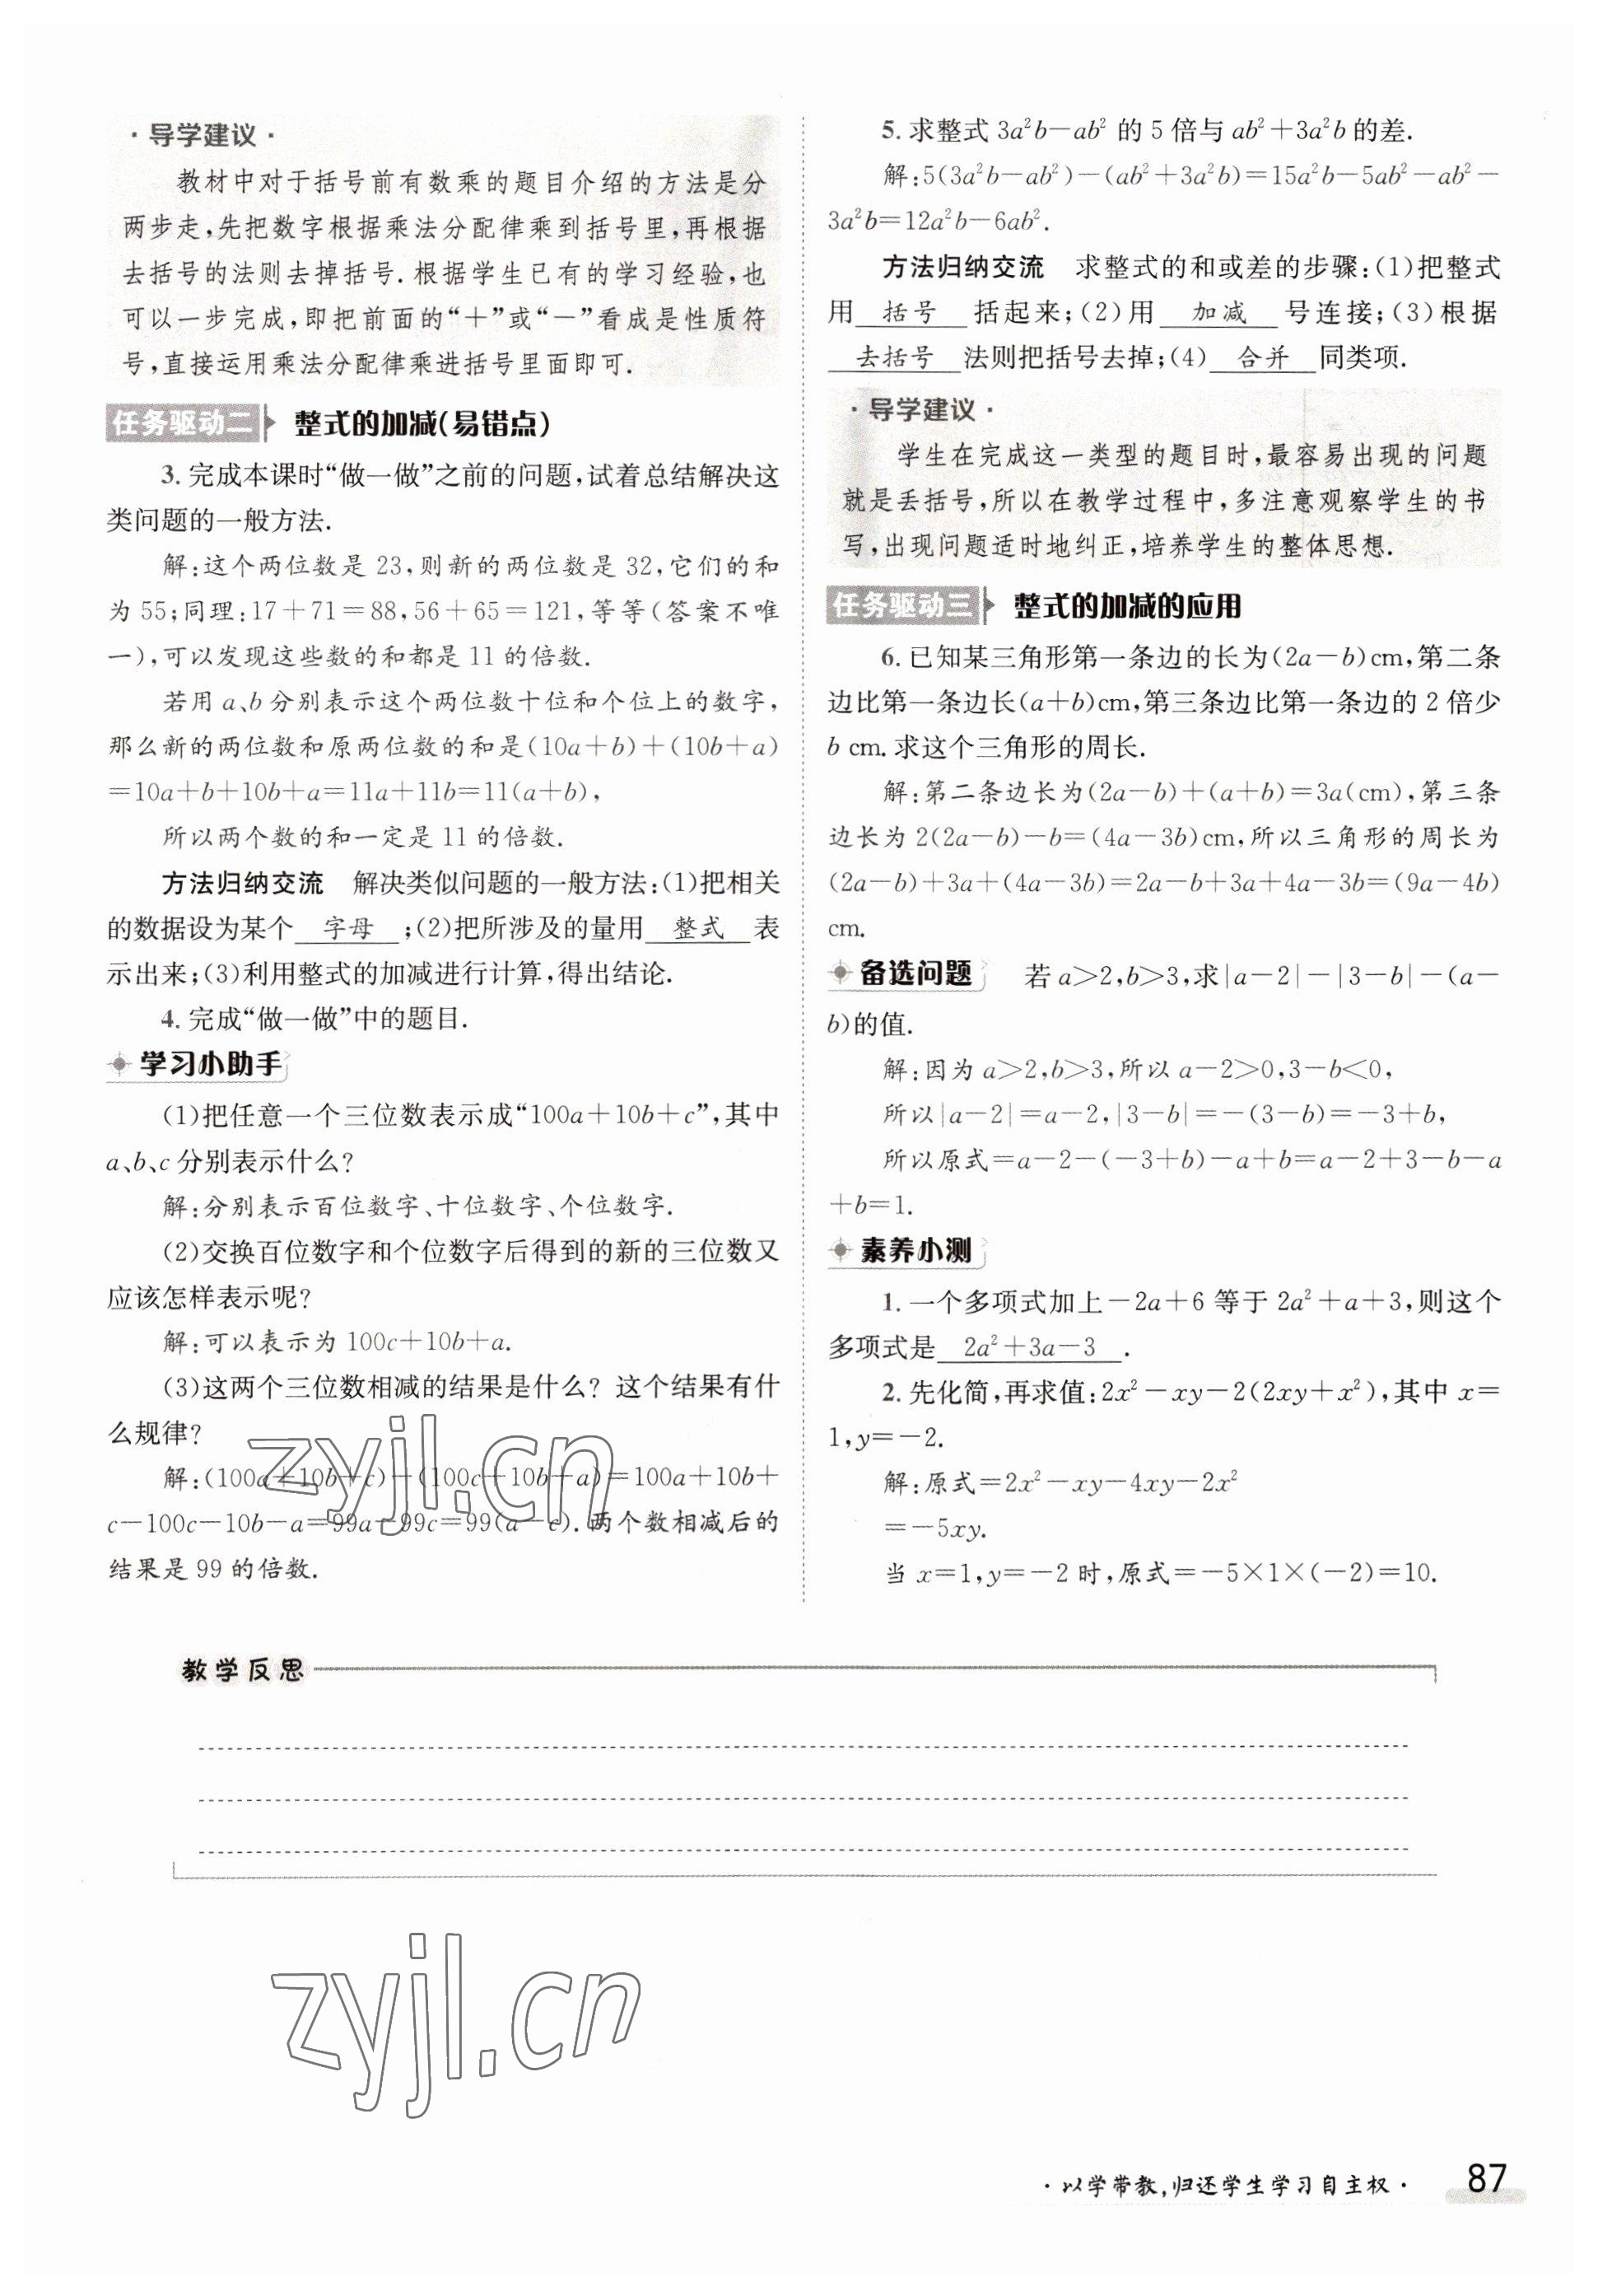 ·导学建议·
教材中对于括号前有数乘的题目介绍的方法是分
两步走,先把数字根据乘法分配律乘到括号里,再根据
去括号的法则去掉括号.根据学生已有的学习经验,也
可以一步完成,即把前面的“+”或“-”看成是性质符
号,直接运用乘法分配律乘进括号里面即可.
任务驱动二 整式的加减(易错点)
3.完成本课时“做一做”之前的问题,试着总结解决这
类问题的一般方法.
解:这个两位数是 23,则新的两位数是 32,它们的和
为 55;同理:17+71=88,56+65=121,等等(答案不唯
一),可以发现这些数的和都是 11 的倍数.
若用 a、b 分别表示这个两位数十位和个位上的数字,
那么新的两位数和原两位数的和是(10a+b)+(10b+a)
=10a+b+10b+a=11a+11b=11(a+b),
所以两个数的和一定是 11 的倍数.
方法归纳交流 解决类似问题的一般方法:(1)把相关
的数据设为某个 字母 ;(2)把所涉及的量用 整式 表
示出来;(3)利用整式的加减进行计算,得出结论.
4.完成“做一做”中的题目.
学习小助手
(1)把任意一个三位数表示成“100a+10b+c”,其中
a、b、c 分别表示什么?
解:分别表示百位数字、十位数字、个位数字.
(2)交换百位数字和个位数字后得到的新的三位数又
应该怎样表示呢?
解:可以表示为 100c+10b+a.
(3)这两个三位数相减的结果是什么? 这个结果有什
么规律?
解:(100a+10b+c)-(100c+10b+a)=100a+10b+
c-100c-10b-a=99a-99c=99(a-c).两个数相减后的
结果是 99 的倍数.
zyjl.cn
5.求整式 3a²b-ab² 的 5 倍与 ab²+3a²b 的差.
解:5(3a²b-ab²)-(ab²+3a²b)=15a²b-5ab²-ab²-
3a²b=12a²b-6ab².
方法归纳交流 求整式的和或差的步骤:(1)把整式
用 括号 括起来;(2)用 加减 号连接;(3)根据
去括号 法则把括号去掉;(4) 合并 同类项.
·导学建议·
学生在完成这一类型的题目时,最容易出现的问题
就是丢括号,所以在教学过程中,多注意观察学生的书
写,出现问题适时地纠正,培养学生的整体思想.
任务驱动三 整式的加减的应用
6.已知某三角形第一条边的长为(2a-b)cm,第二条
边比第一条边长(a+b)cm,第三条边比第一条边的 2 倍少
b cm.求这个三角形的周长.
解:第二条边长为(2a-b)+(a+b)=3a(cm),第三条
边长为 2(2a-b)-b=(4a-3b)cm,所以三角形的周长为
(2a-b)+3a+(4a-3b)=2a-b+3a+4a-3b=(9a-4b)
cm.
备选问题 若 a>2,b>3,求|a-2|-|3-b|-(a-
b)的值.
解:因为 a>2,b>3,所以 a-2>0,3-b<0,
所以|a-2|=a-2,|3-b|=-(3-b)=-3+b,
所以原式=a-2-(-3+b)-a+b=a-2+3-b-a
+b=1.
素养小测
1.一个多项式加上-2a+6 等于 2a²+a+3,则这个
多项式是 2a²+3a-3 .
2.先化简,再求值:2x²-xy-2(2xy+x²),其中 x=
1,y=-2.
解:原式=2x²-xy-4xy-2x²
=-5xy.
当 x=1,y=-2 时,原式=-5×1×(-2)=10.
教学反思
zyjl.cn
·以学带教,归还学生学习自主权· 87